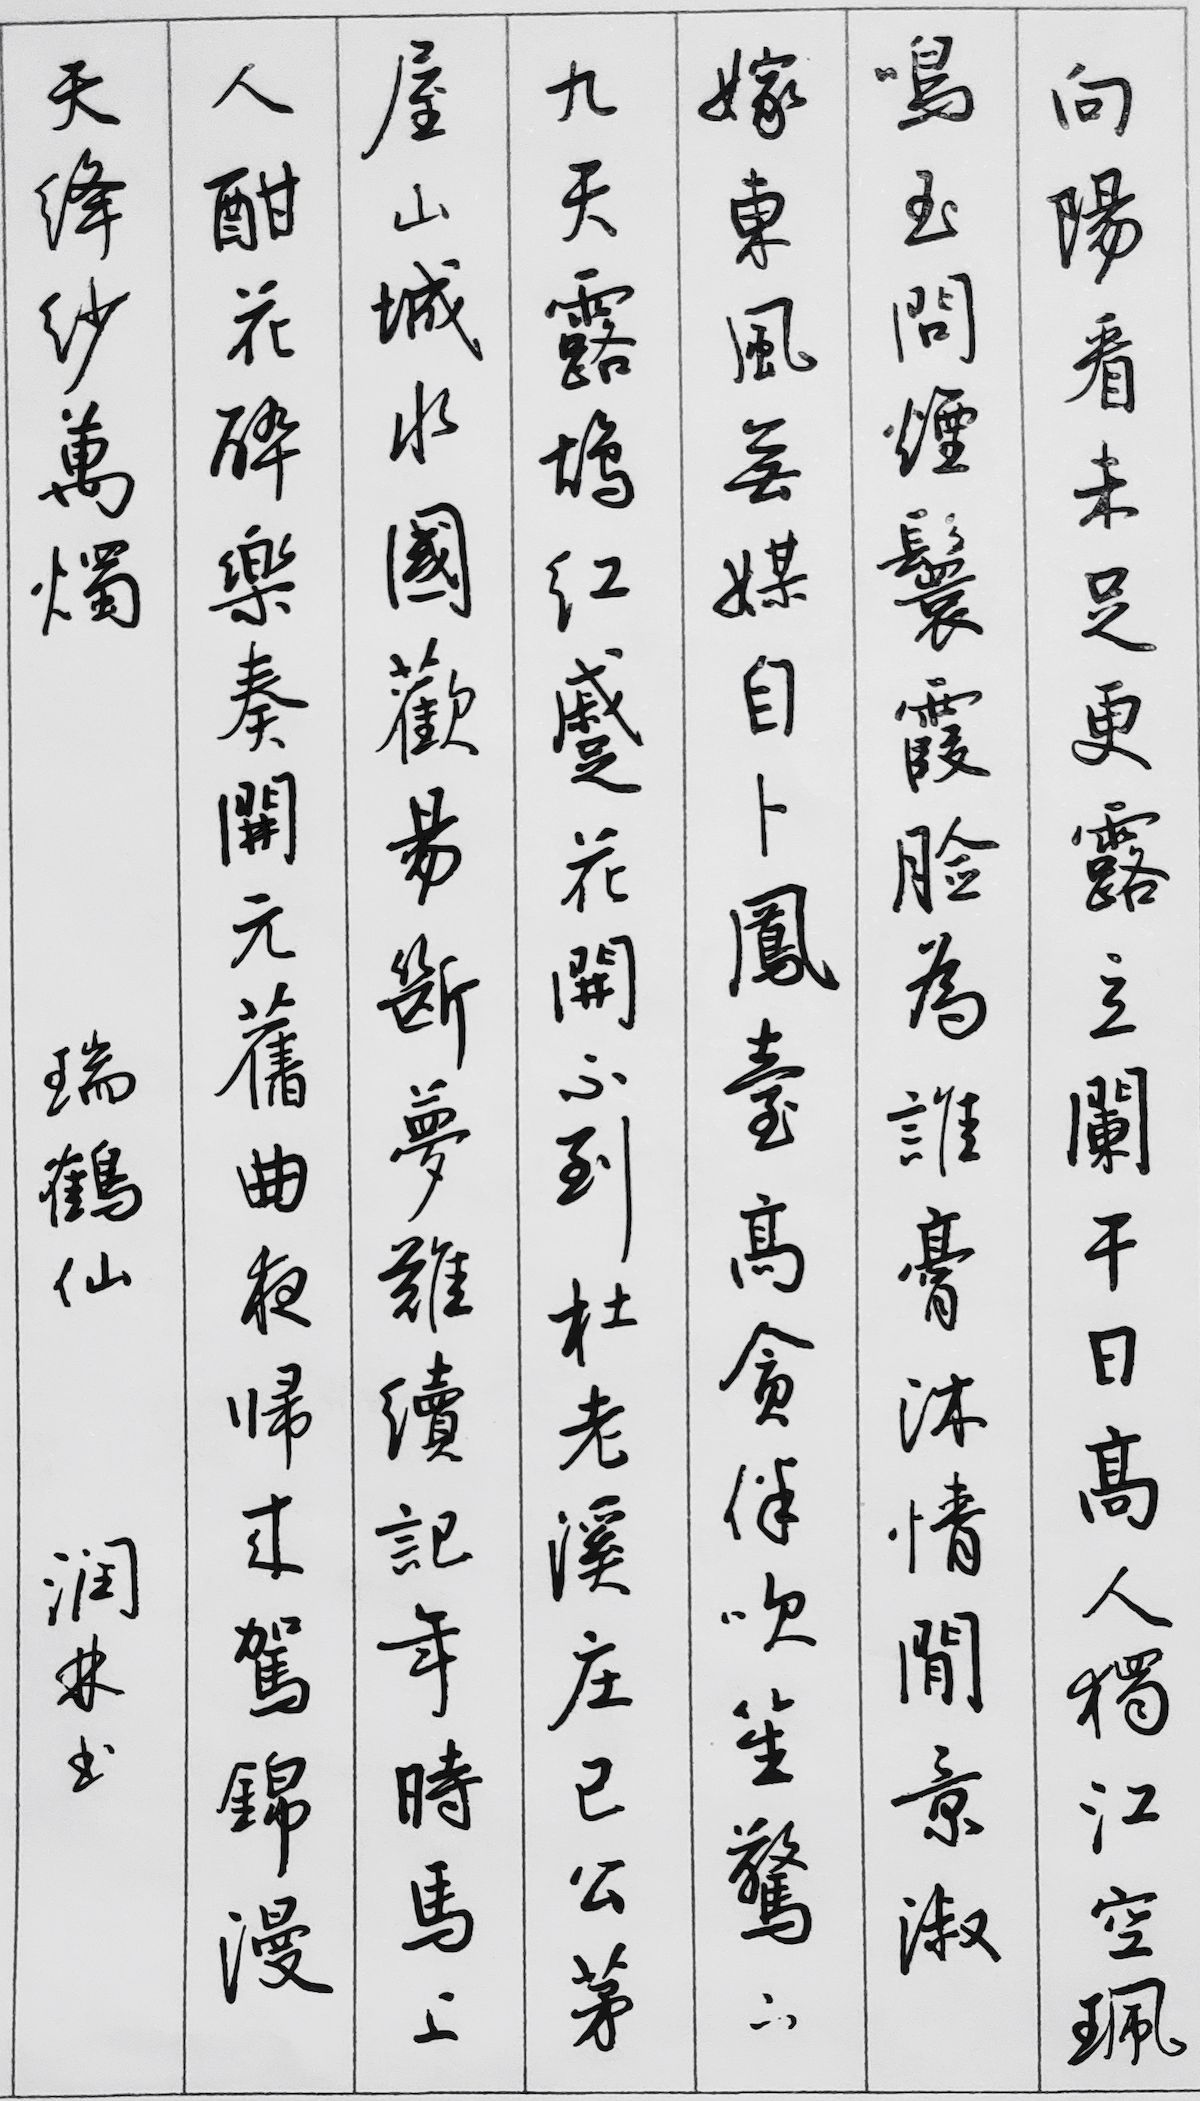 向陽看未足更露立闌干日高人獨江空珮
鳴玉問煙鬟霞脸為誰膏沐情閒景淑
嫁東風無媒自卜鳳臺高貪伴吹笙驚下
九天露鵠红蹙花開不到杜老溪庄已公茅
屋山城水國歡易斷夢難續記年時馬上
人酣花醉樂奏開元舊曲夜帰来駕錦漫
天绛纱萬燭 瑞鶴仙 润林书